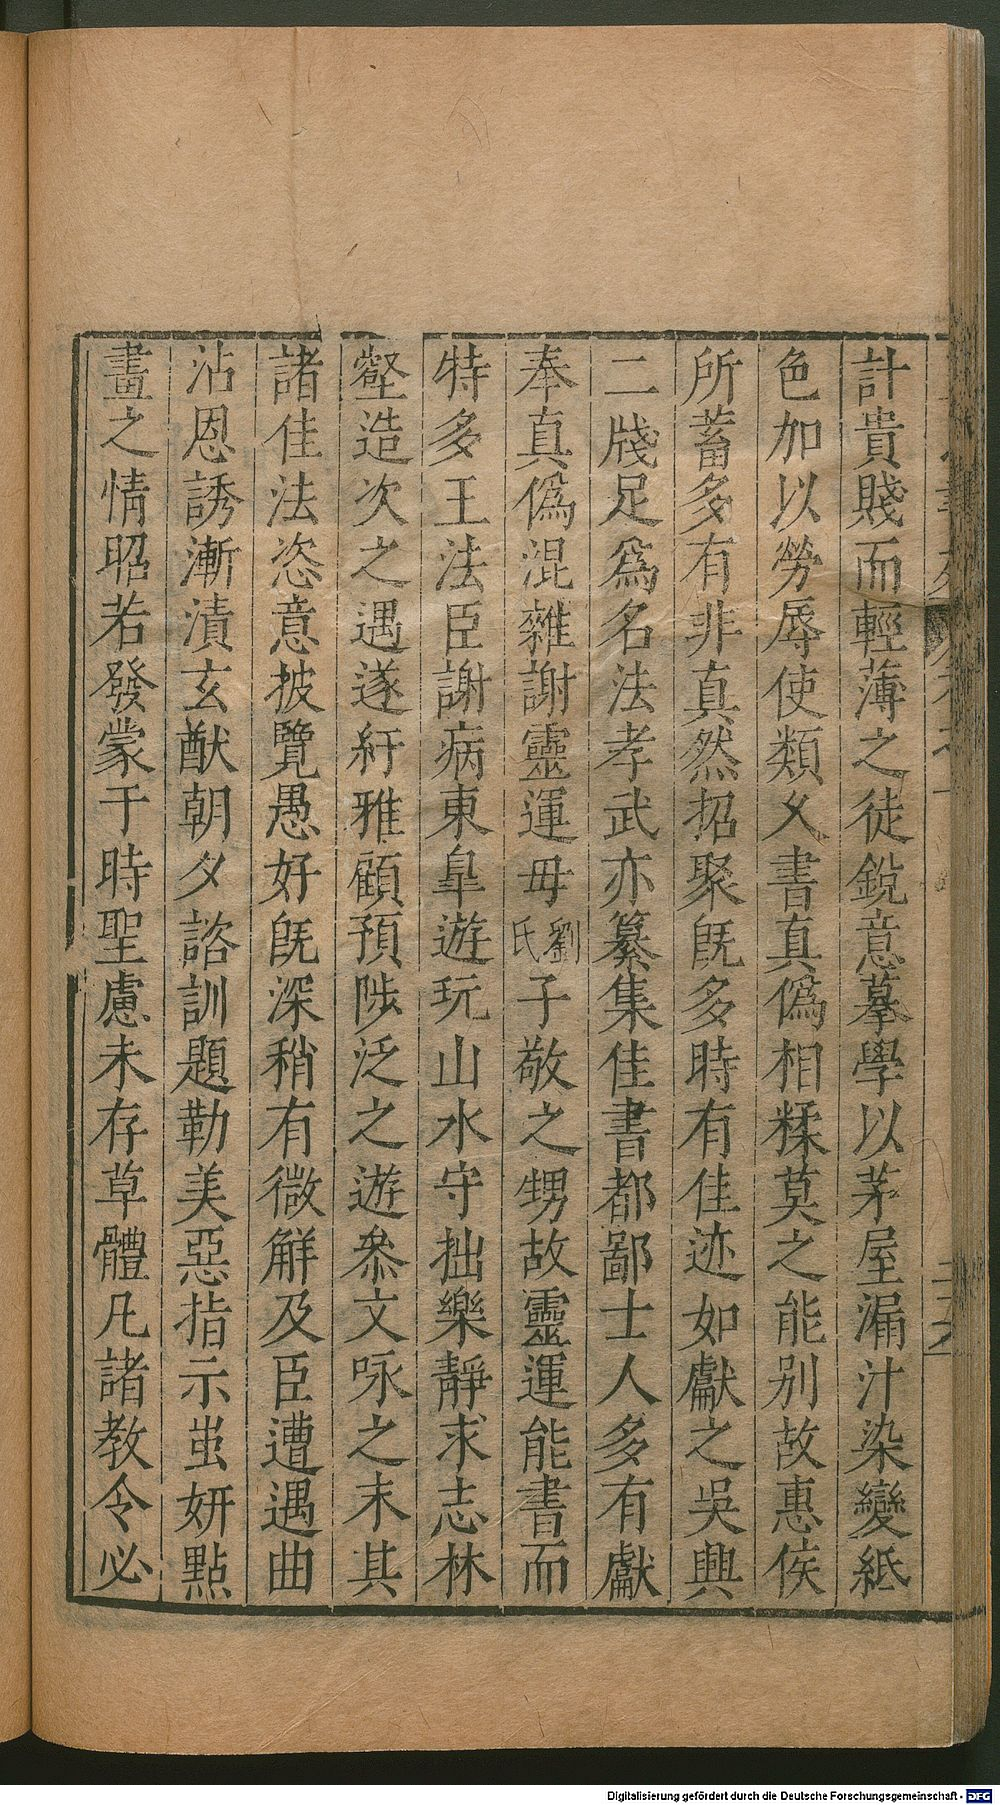 計貴賤而輕薄之徒鋭意摹學以茅屋漏汁染變紙
色加以勞辱使類久書真僞相糅莫之能别故惠侯
所蓄多有非真然招聚旣多時有佳迹如獻之吳興
二牋足爲名法孝武亦纂集佳書都鄙士人多有獻
奉真僞混雜謝靈運母劉氏子敬之甥故靈運能書而
特多王法臣謝病東臯遊玩山水守拙樂靜求志林
壑造次之遇遂紆雅顧預陟泛之遊叅文咏之末其
諸佳法恣意披覽愚好旣深稍有微解及臣遭遇曲
沾恩誘漸漬玄猷朝夕諮訓題勒美惡指示蚩妍點
畫之情昭若發蒙于時聖慮未存草體凡諸教令必
Digitalisierung gefördert durch die Deutsche Forschungsgemeinschaft - DFG